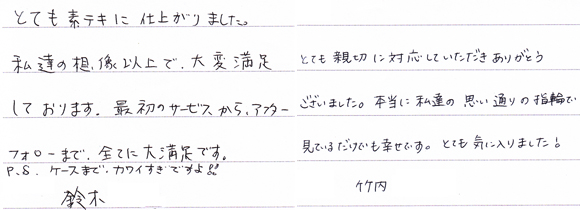 とても素テキに仕上がりました。
私達の想像以上で、大変満足
しております。最初のサービスから、アフター
フォローまで、全てに大満足です。
P.S. ケースまで、カワイすぎですよ!!
鈴木
とても親切に対応していただきありがとう
ございました。本当に私達の思い通りの指輪で
見ているだけでも幸せです。とても気に入りました!
竹内